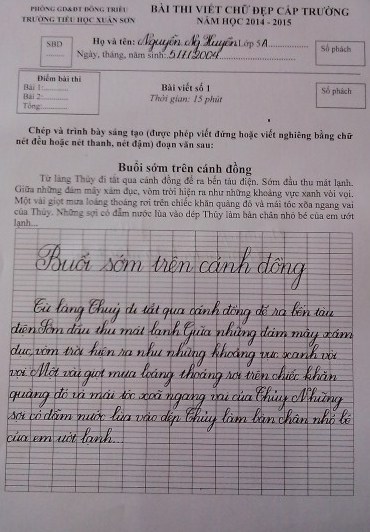 PHÒNG GD&ĐT ĐÔNG TRIỀU
TRƯỜNG TIỂU HỌC XUÂN SƠN
BÀI THI VIẾT CHỮ ĐẸP CẤP TRƯỜNG
NĂM HỌC 2014 - 2015
SBD
Họ và tên: Nguyễn Ng Huyền Lớp 5A
Ngày, tháng, năm sinh: 5/11/2004
Số phách
Điểm bài thi
Bài 1:
Bài 2:
Tổng:
Bài viết số 1
Thời gian: 15 phút
Số phách
Chép và trình bày sáng tạo (được phép viết đứng hoặc viết nghiêng bằng chữ
nét đều hoặc nét thanh, nét đậm) đoạn văn sau:
Buổi sớm trên cánh đồng
Từ làng Thủy đi tắt qua cánh đồng để ra bến tàu điện. Sớm đầu thu mát lạnh.
Giữa những đám mây xám đục, vòm trời hiện ra như những khoảng vực xanh vòi vọi.
Một vài giọt mưa loáng thoáng rơi trên chiếc khăn quàng đỏ và mái tóc xõa ngang vai
của Thủy. Những sợi cỏ đẫm nước lùa vào dép Thủy làm bàn chân nhỏ bé của em ướt
lạnh...
Buổi sớm trên cánh đồng
Từ làng Thuỷ đi tắt qua cánh đồng để ra bến tàu
điện Sớm đầu thu mát lạnh Giữa những đám mây xám
đục, vòm trời hiện ra như những khoảng vực xanh vòi
vọi Một vài giọt mưa loáng thoáng rơi trên chiếc khăn
quàng đỏ và mái tóc xoã ngang vai của Thủy Những
sợi cỏ đẫm nước lùa vào dép Thủy làm bàn chân nhỏ bé
của em ướt lạnh...